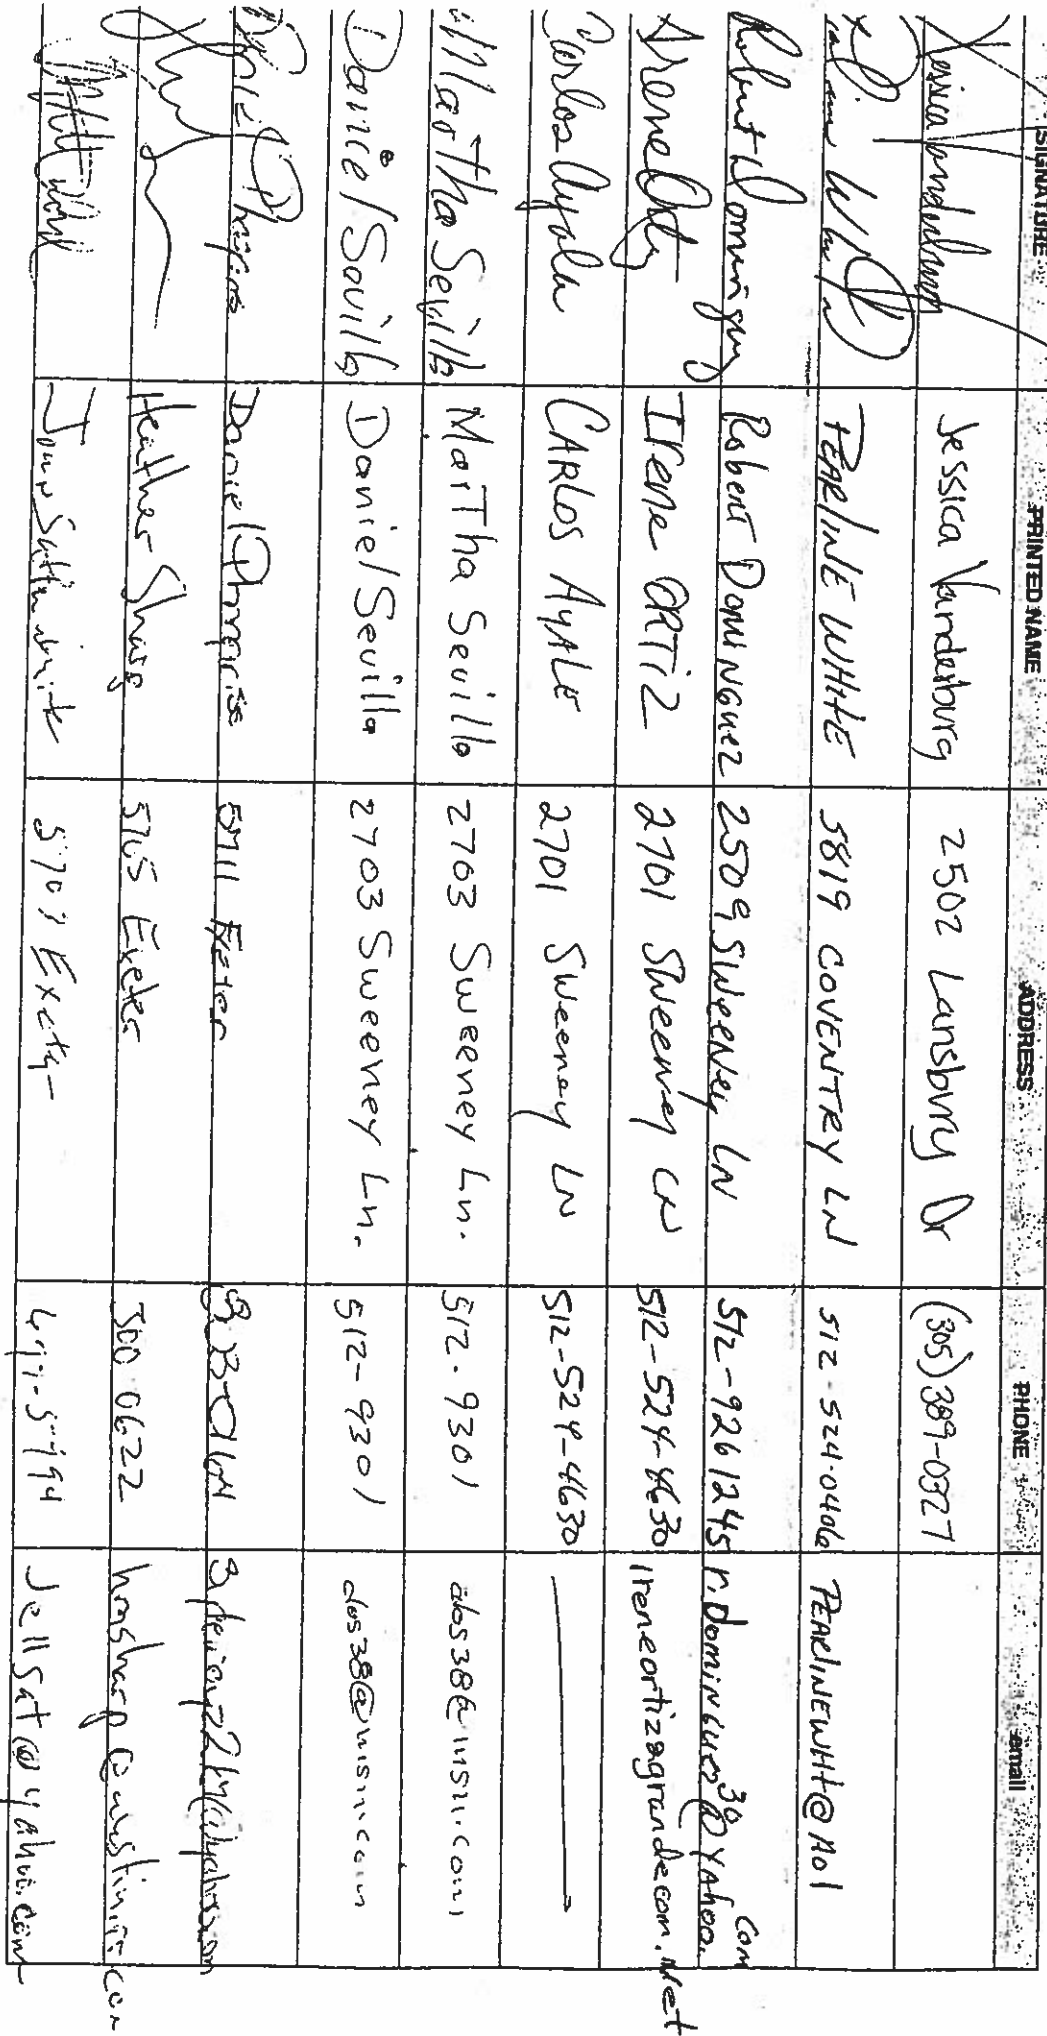 SIGNATURE PRINTED NAME ADDRESS PHONE email
Jessica Vanderburg Jessica Vanderburg 2502 Lansbury Dr (305) 389-0327
PEARlINE WHITE 5819 COVENTRY LN 512-524-0406 PEARlINEWHt@AOl
Robert Dominguez Robert DOMINGUEZ 2509 SWEENEY LN 512-9261245 r.DOMINGUEZ30@YAhoo.com
Irene Ortiz Irene ORTiZ 2701 Sweeney LN 512-524-4630 ireneortiz@grandecom.net
Carlos Ayala CARLOS AYALE 2701 Sweeney LN 512-524-4630
Martha Sevilla MarTha Sevilla 2703 Sweeney Ln. 512.9301
Daniel Sevilla Daniel Sevilla 2703 Sweeney Ln. 512-9301 dos38@msn.com
Daniel 5711 Exeter
Heather Sharp 5705 Exeter 500-0622
John 5703 Jellsat@yahoo.com